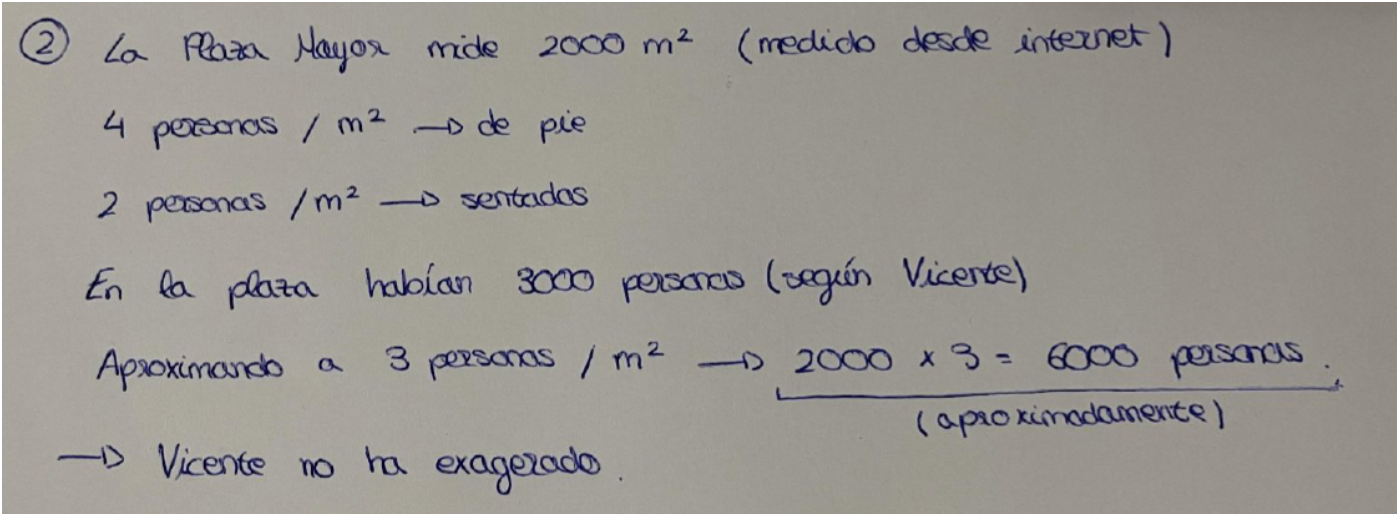 ② La Plaza Mayor mide 2000 m² (medido desde internet)
4 personas / m² → de pie
2 personas / m² → sentadas
En la plaza habían 3000 personas (según Vicente)
Aproximando a 3 personas / m² → 2000 x 3 = 6000 personas.
(aproximadamente)
→ Vicente no ha exagerado.